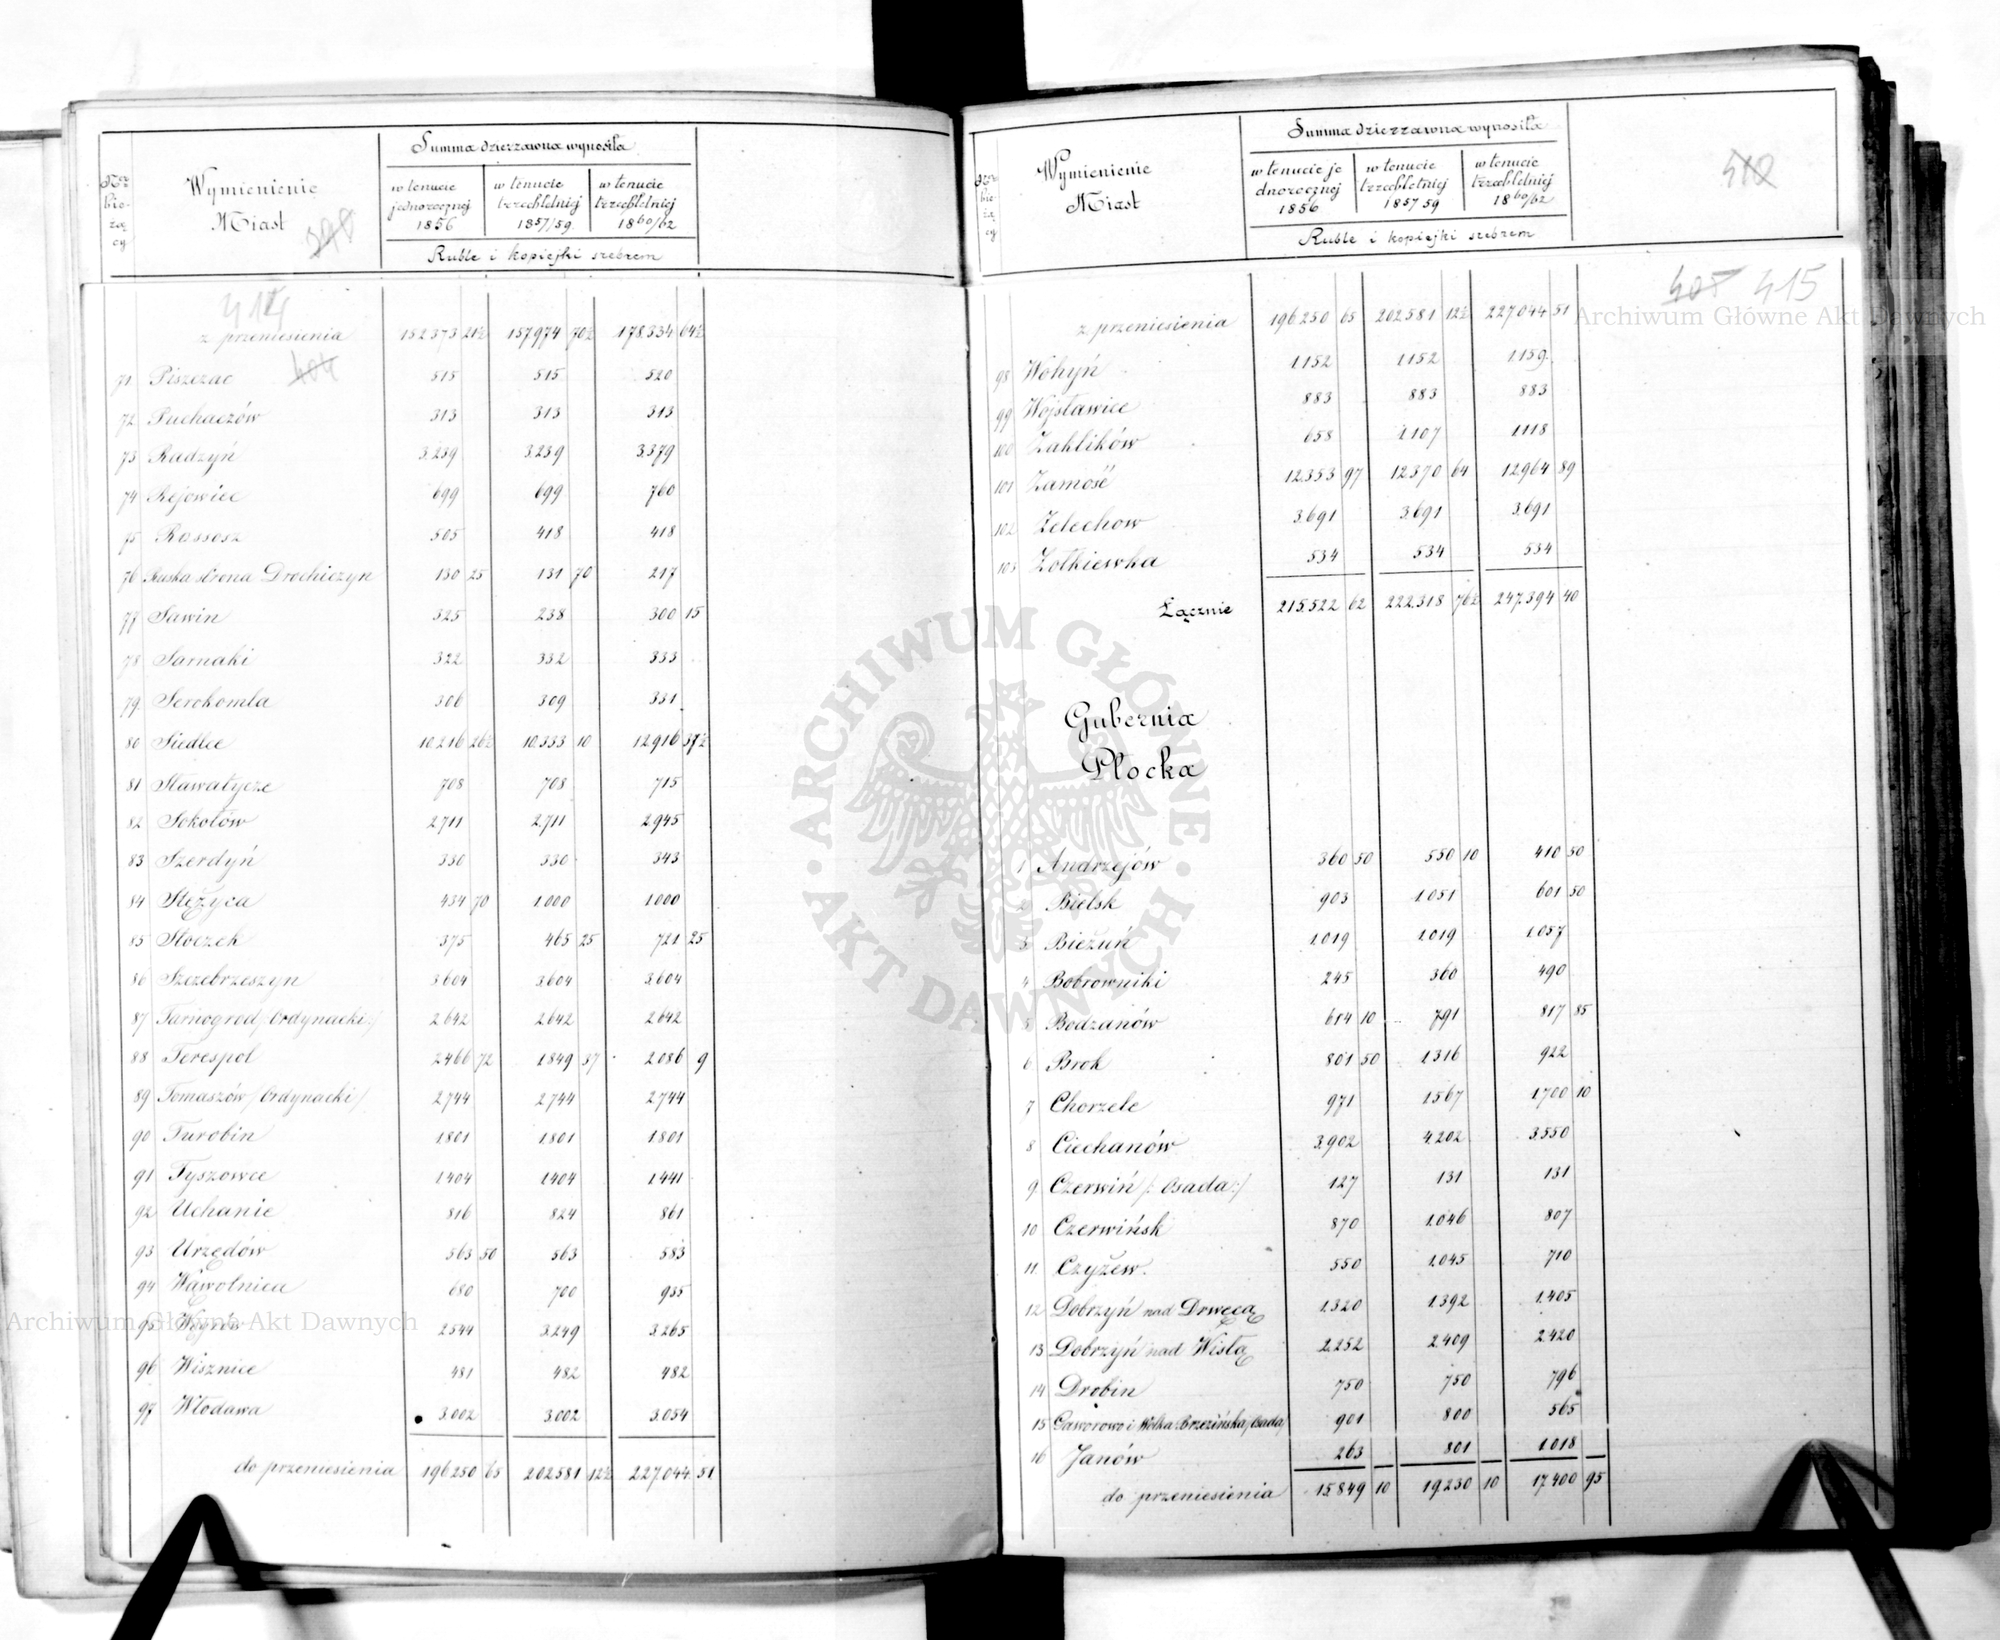 Nr bieżący
Wymienienie Miast
Summa dzierzawna wynosiła
w tenucie jednorocznej 1856
w tenucie trzechletniej 1857/59
w tenucie trzechletniej 1860/62
Ruble i kopiejki srebrem
414
404
z przeniesienia 152373 21½ 157974 70½ 178.334 64½
71 Piszczac 515 515 520
72 Puchaczów 313 313 313
73 Radzyń 3.239 3.239 3.379
74 Rejowiec 699 699 760
75 Rossosz 505 418 418
76 Ruska strona Drochiczyn 130 25 131 70 217
77 Sawin 325 238 300 15
78 Sarnaki 322 332 333
79 Serokomla 306 309 331
80 Siedlce 10.216 26½ 10.333 10 12916 37½
81 Sławatycze 708 708 715
82 Sokołów 2711 2.711 2.945
83 Szerdyń 330 330 343
84 Stężyca 434 70 1.000 1.000
85 Stoczek 375 465 25 721 25
86 Szczebrzeszyn 3604 3.604 3.604
87 Tarnogrod /Ordynacki:/ 2642 2.642 2.642
88 Terespol 2466 72 1.849 37 2.086 9
89 Tomaszów /Ordynacki/ 2744 2.744 2.744
90 Turobin 1.801 1.801 1.801
91 Tyszowce 1404 1.404 1.441
92 Uchanie 816 824 861
93 Urzędów 563 50 563 583
94 Wąwolnica 680 700 935
95 Węgrów 2544 3.249 3.265
96 Wisznice 481 482 482
97 Włodawa 3.002 3.002 3.054
do przeniesienia 196250 65 202581 12½ 227.044 51
Nr bieżący
Wymienienie Miast
Summa dzierzawna wynosiła
w tenucie jednorocznej 1856
w tenucie trzechletniej 1857 59
w tenucie trzechletniej 1860/62
Ruble i kopiejki srebrem
415
z przeniesienia 196.250 65 202.581 12½ 227.044 51
98 Wohyń 1.152 1.152 1.159
99 Wojsławice 883 883 883
100 Zaklików 658 1.107 1.118
101 Zamość 12.353 97 12.370 64 12.964 89
102 Zelechow 3.691 3.691 3.691
103 Zołkiewka 534 534 534
Łącznie 215.522 62 222.318 76½ 247.394 40
Gubernia
Płocka
1 Andrzejów 360 50 550 10 410 50
2 Bielsk 903 1.051 601 50
3 Bieżuń 1.019 1.019 1.057
4 Bobrowniki 245 360 490
5 Bodzanów 614 10 791 817 85
6 Brok 801 50 1.316 922
7 Chorzele 971 1.567 1.700 10
8 Ciechanów 3.902 4.202 3.550
9 Czerwiń /: Osada:/ 127 131 131
10 Czerwińsk 870 1.046 807
11 Czyżew. 550 1.045 710
12 Dobrzyń nad Drwęcą 1.320 1.392 1.405
13 Dobrzyń nad Wisłą 2.252 2.409 2.420
14 Drobin 750 750 796
15 Gaworowo i Wolka Brzezińska /Osada/ 901 800 565
16 Janów 263 801 1.018
do przeniesienia 15.849 10 19.230 10 17.400 95
Archiwum Główne Akt Dawnych
Archiwum Główne Akt Dawnych
ARCHIWUM GŁÓWNE · AKT DAWNYCH ·